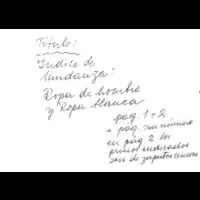 Título:
Indice de
Mudanza:
Ropa de hombre
y Ropa blanca
pag 1 + 2
+ pag. sin número
en pág 2 los
precios indicados
son de zapatos